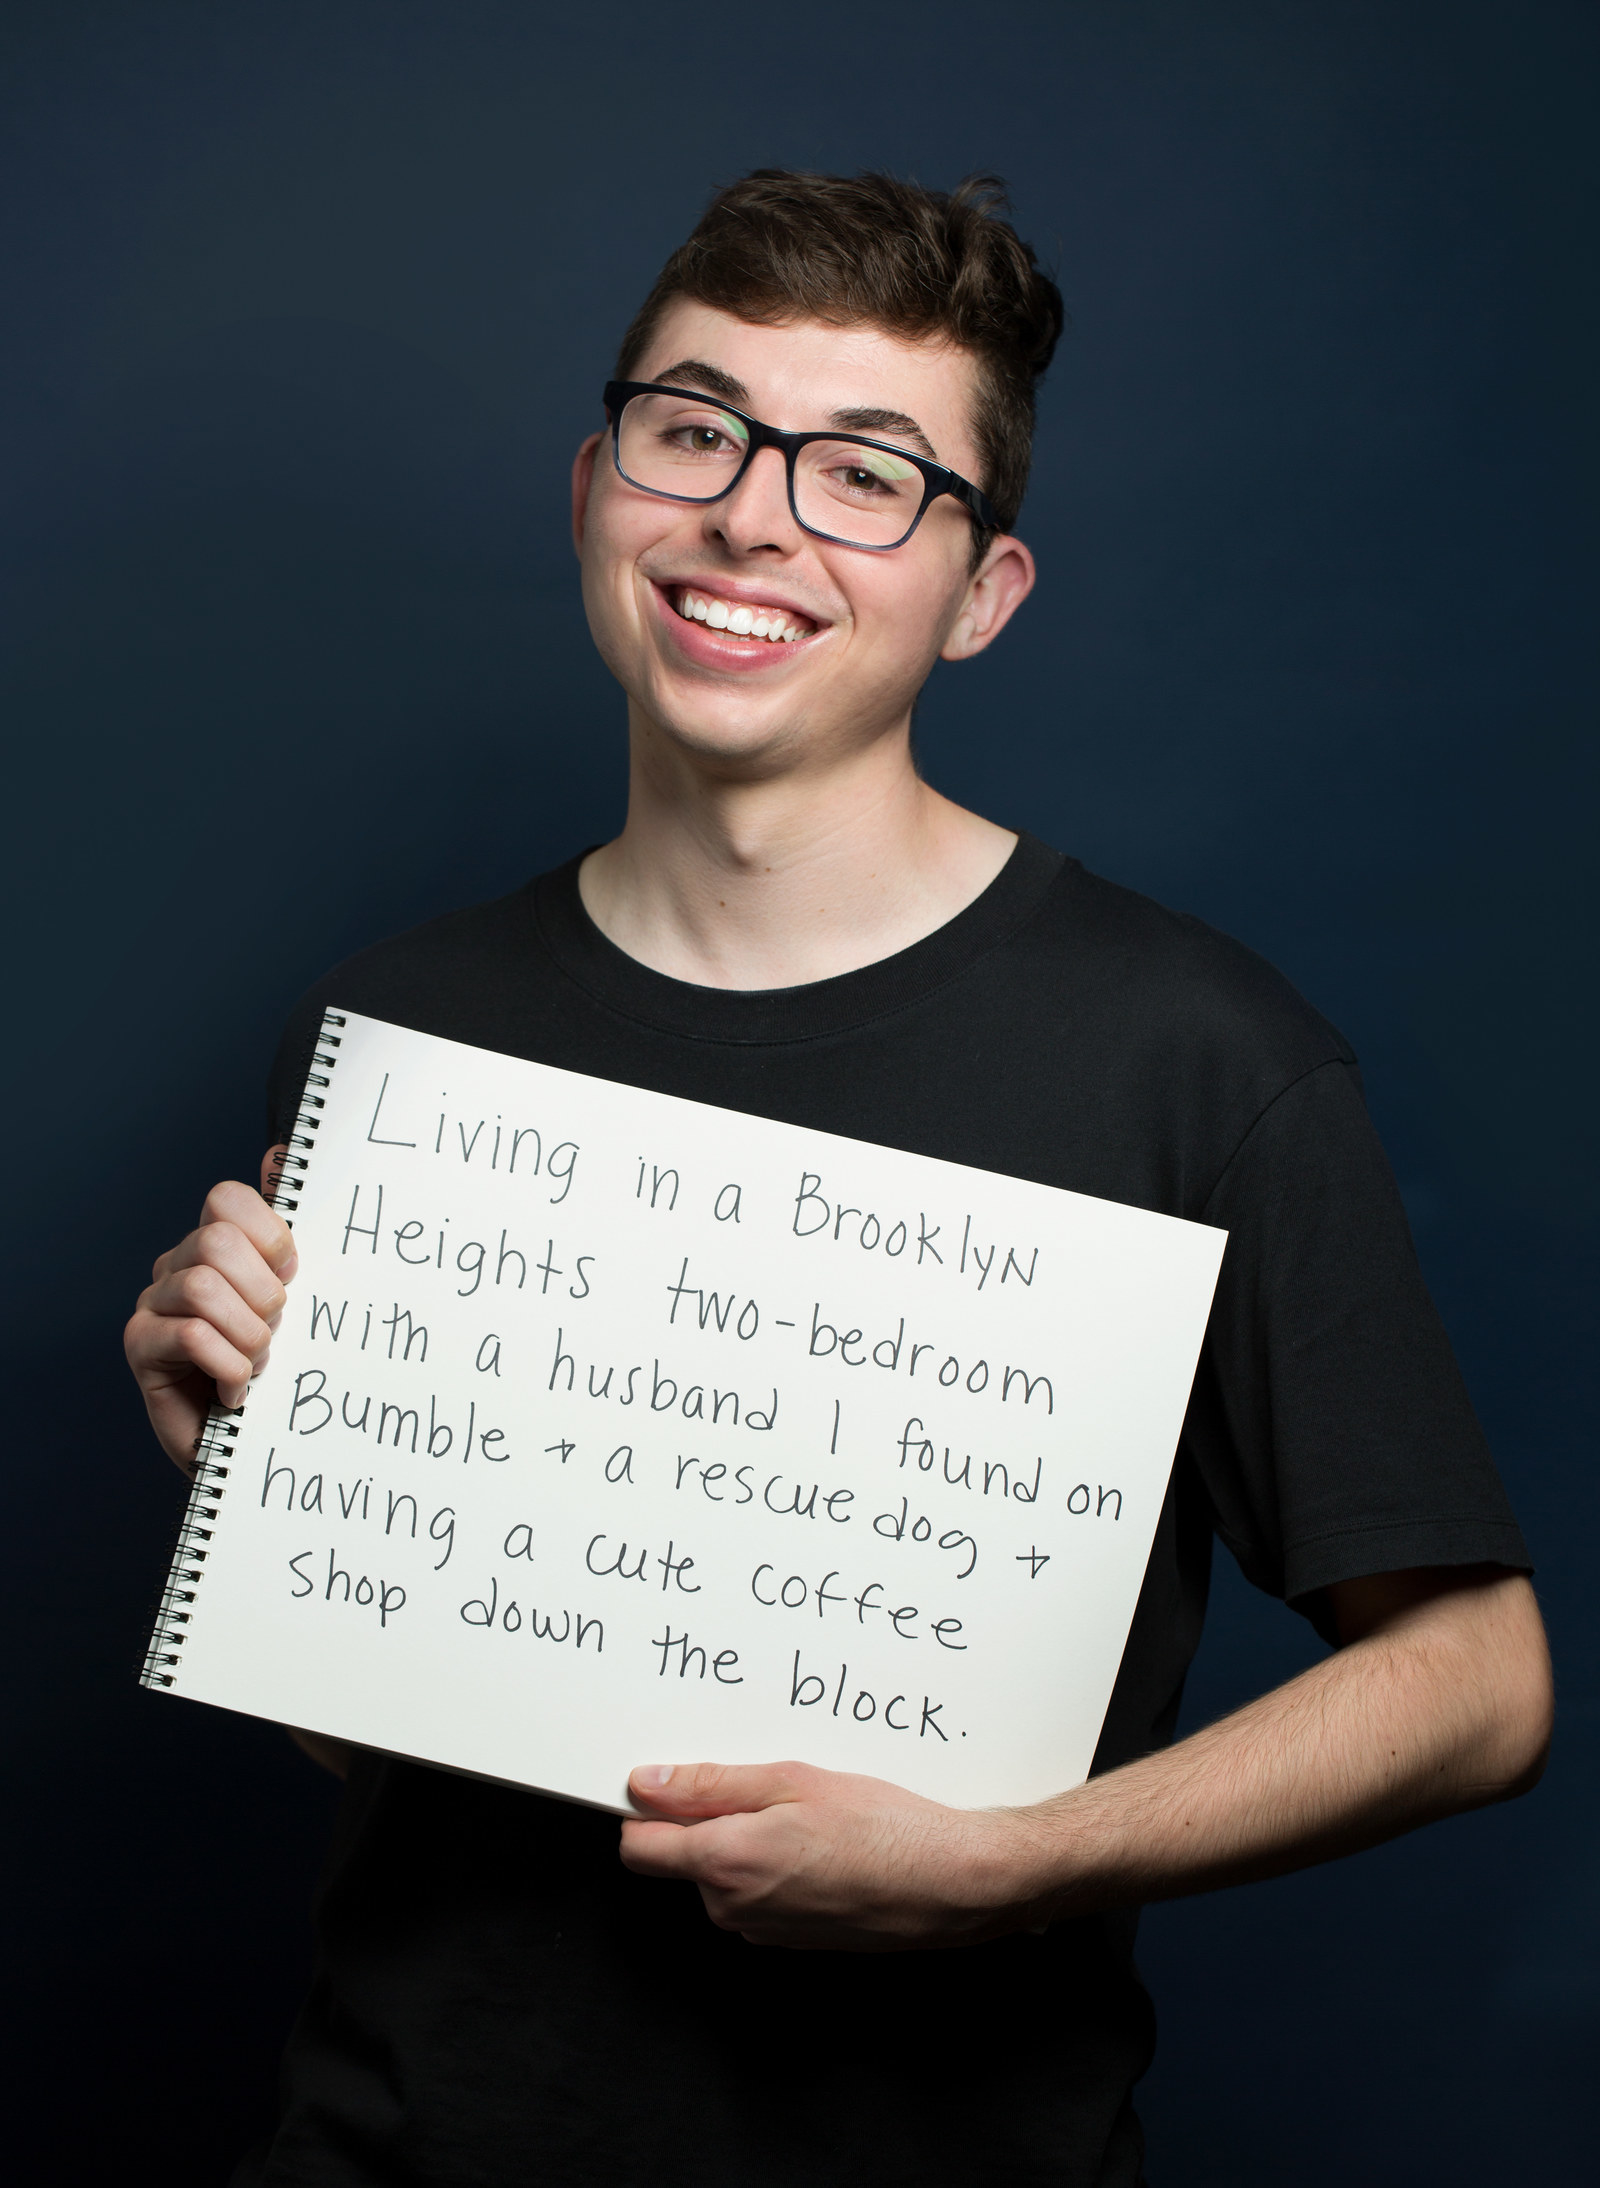 Living in a Brooklyn
Heights two-bedroom
with a husband I found on
Bumble + a rescue dog +
having a cute coffee
shop down the block.